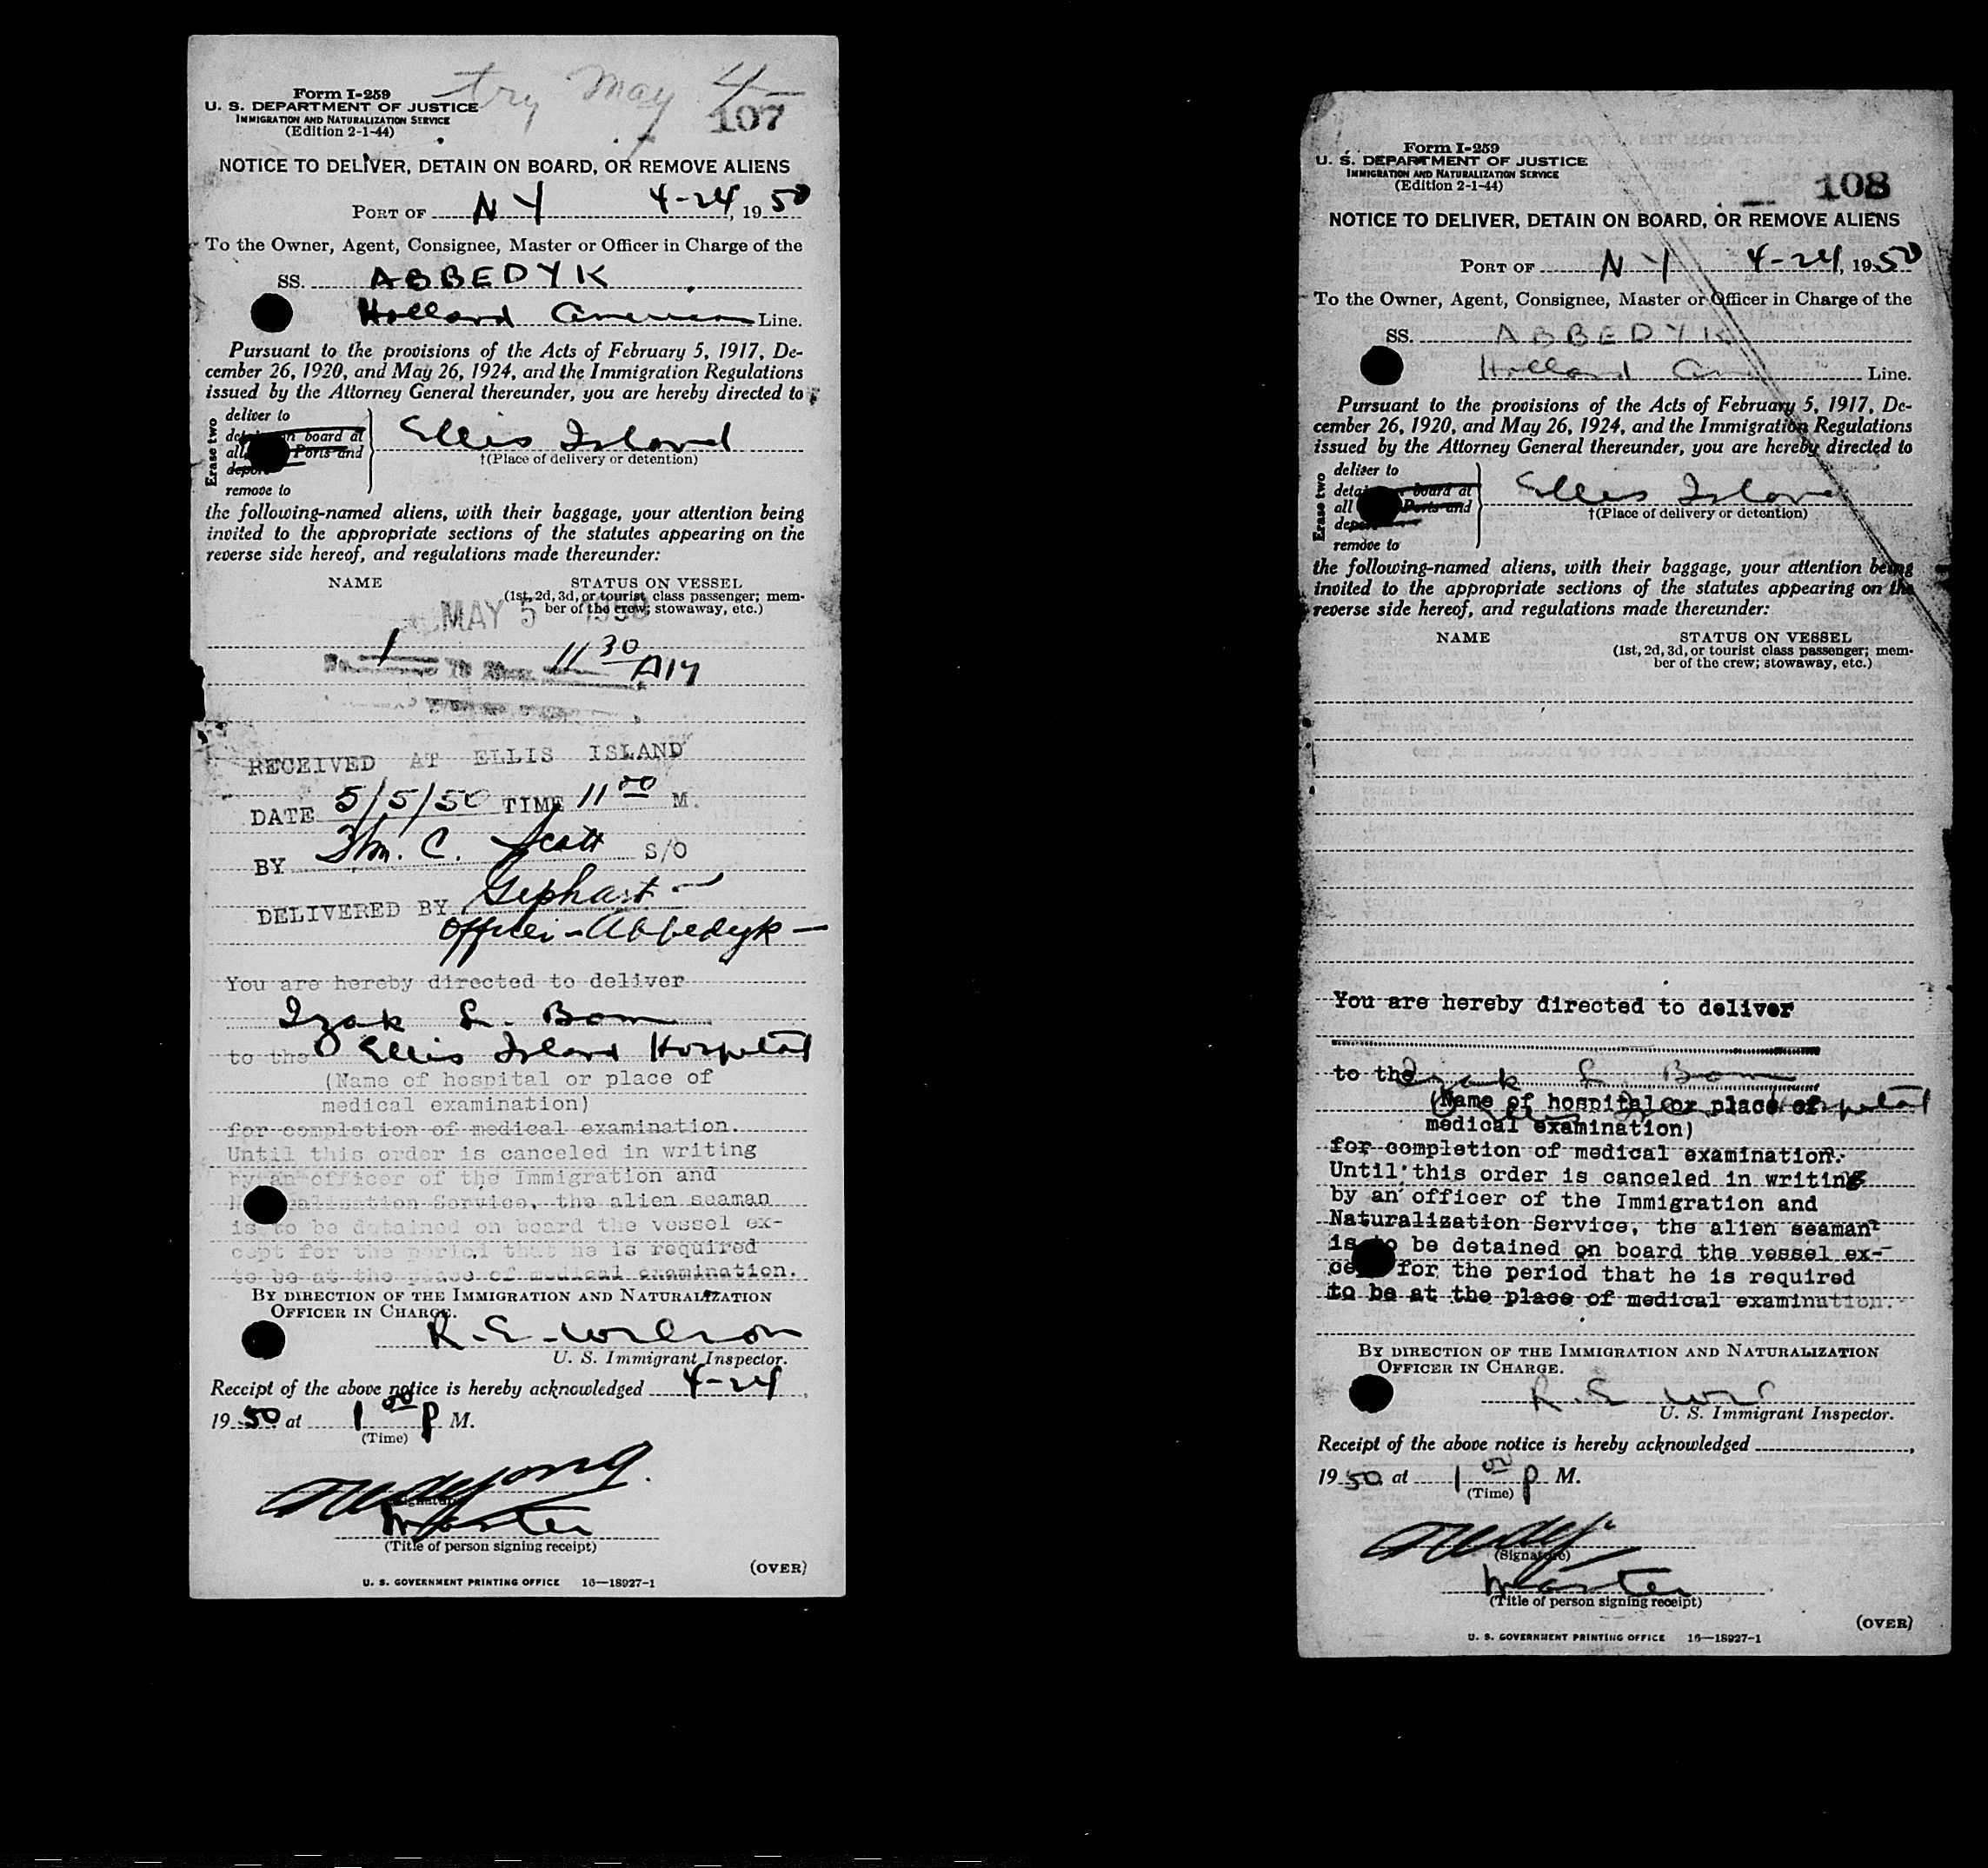 try May 4
Form I-259
U. S. DEPARTMENT OF JUSTICE
IMMIGRATION AND NATURALIZATION SERVICE
(Edition 2-1-44)
107
NOTICE TO DELIVER, DETAIN ON BOARD, OR REMOVE ALIENS
PORT OF N Y 4-24, 1950
To the Owner, Agent, Consignee, Master or Officer in Charge of the
SS. ABBEDYK
Holland American Line.
Pursuant to the provisions of the Acts of February 5, 1917, De-
cember 26, 1920, and May 26, 1924, and the Immigration Regulations
issued by the Attorney General thereunder, you are hereby directed to
Erase two
deliver to
board at
all Ports and
remove to
Ellis Island
†(Place of delivery or detention)
the following-named aliens, with their baggage, your attention being
invited to the appropriate sections of the statutes appearing on the
reverse side hereof, and regulations made thereunder:
NAME STATUS ON VESSEL
(1st, 2d, 3d, or tourist class passenger; mem-
ber of the crew; stowaway, etc.)
MAY 5 1950
1 11 30 AM
RECEIVED AT ELLIS ISLAND
DATE 5/5/50 TIME 11 00 M.
BY Wm. C. Scott S/O
DELIVERED BY Gephart
Officer - Abbedyk
You are hereby directed to deliver
Izak L. Bom
to the Ellis Island Hospital
(Name of hospital or place of
medical examination)
for completion of medical examination.
Until this order is canceled in writing
by an officer of the Immigration and
Naturalization Service, the alien seaman
is to be detained on board the vessel ex-
cept for the period that he is required
to be at the place of medical examination.
BY DIRECTION OF THE IMMIGRATION AND NATURALIZATION
OFFICER IN CHARGE.
R. E. Wilson
U. S. Immigrant Inspector.
Receipt of the above notice is hereby acknowledged 4-24,
1950 at 1 00 P M.
(Time)
(Signature)
Master
(Title of person signing receipt)
(OVER)
U. S. GOVERNMENT PRINTING OFFICE 16—18927-1
Form I-259
U. S. DEPARTMENT OF JUSTICE
IMMIGRATION AND NATURALIZATION SERVICE
(Edition 2-1-44)
108
NOTICE TO DELIVER, DETAIN ON BOARD, OR REMOVE ALIENS
PORT OF N Y 4-24, 1950
To the Owner, Agent, Consignee, Master or Officer in Charge of the
SS. ABBEDYK
Holland Am Line.
Pursuant to the provisions of the Acts of February 5, 1917, De-
cember 26, 1920, and May 26, 1924, and the Immigration Regulations
issued by the Attorney General thereunder, you are hereby directed to
Erase two
deliver to
board at
all Ports and
remove to
Ellis Island
†(Place of delivery or detention)
the following-named aliens, with their baggage, your attention being
invited to the appropriate sections of the statutes appearing on the
reverse side hereof, and regulations made thereunder:
NAME STATUS ON VESSEL
(1st, 2d, 3d, or tourist class passenger; mem-
ber of the crew; stowaway, etc.)
You are hereby directed to deliver
to the Izak L. Bom
(Name of hospital or place of
medical examination)
for completion of medical examination.
Until this order is canceled in writing
by an officer of the Immigration and
Naturalization Service, the alien seaman
is to be detained on board the vessel ex-
cept for the period that he is required
to be at the place of medical examination.
BY DIRECTION OF THE IMMIGRATION AND NATURALIZATION
OFFICER IN CHARGE.
R. E. Wil
U. S. Immigrant Inspector.
Receipt of the above notice is hereby acknowledged ,
1950 at 1 00 P M.
(Time)
(Signature)
Master
(Title of person signing receipt)
(OVER)
U. S. GOVERNMENT PRINTING OFFICE 16—18927-1